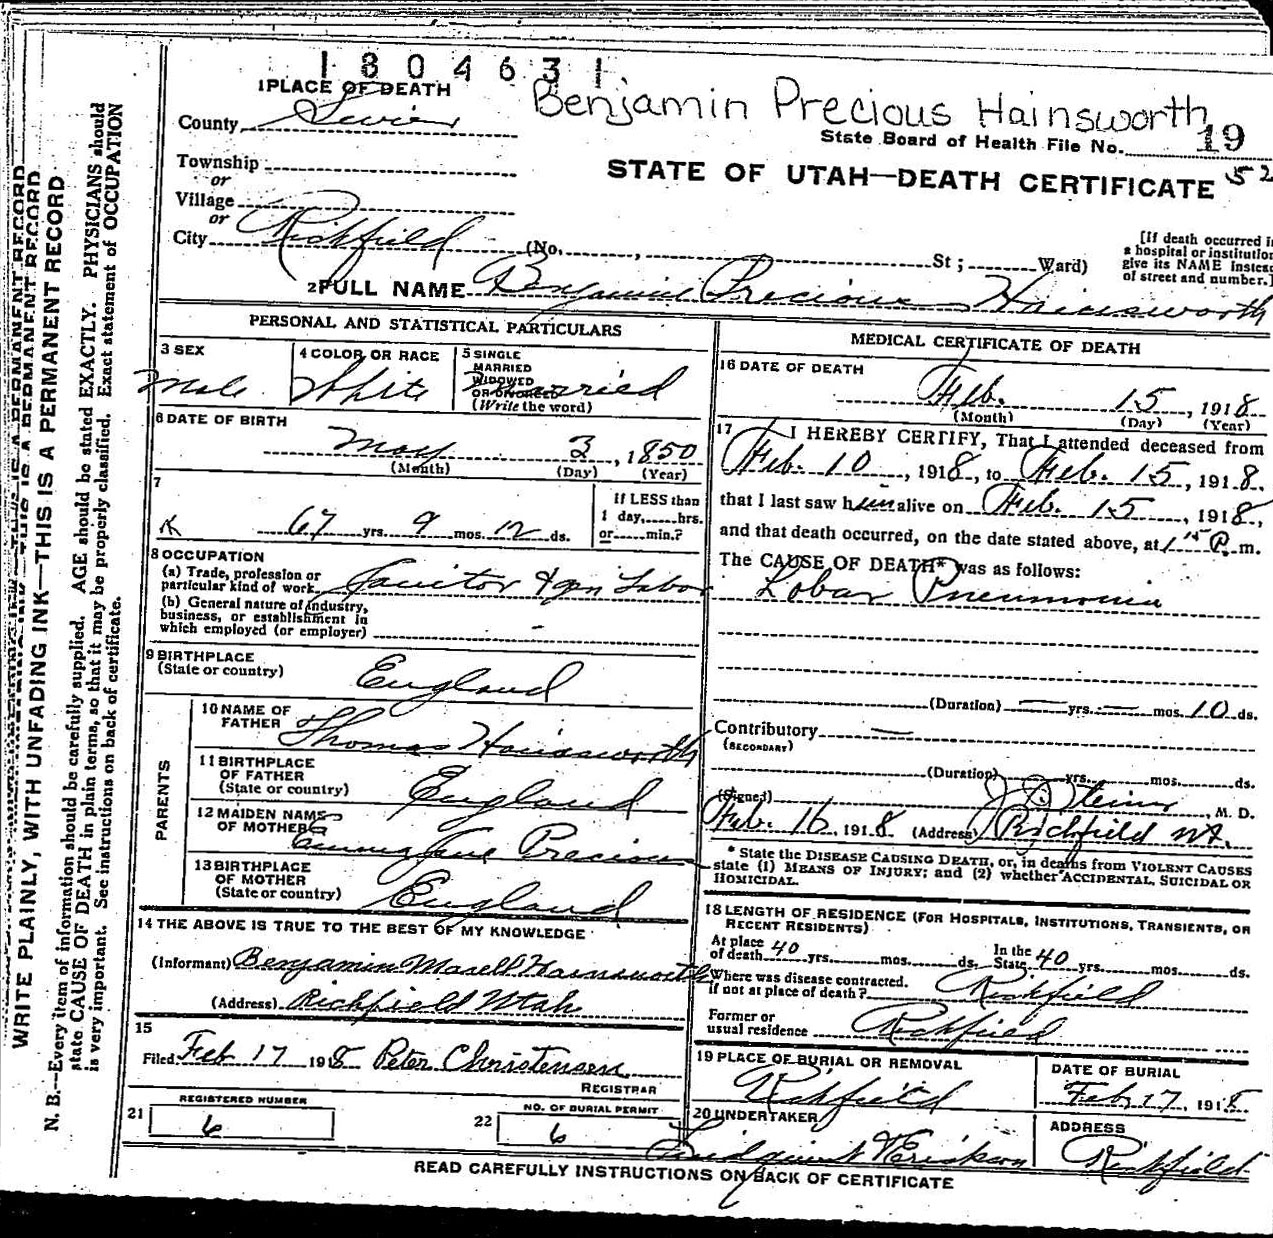 1804631
Benjamin Precious Hainsworth
1 PLACE OF DEATH
County Sevier
State Board of Health File No. 19
52
Township
or
Village
STATE OF UTAH—DEATH CERTIFICATE
or
City Richfield (No. , St; Ward)
[If death occurred in
a hospital or institution
give its NAME instead
of street and number.]
2 FULL NAME Benjamin Precious Hainsworth
PERSONAL AND STATISTICAL PARTICULARS
3 SEX
Male
4 COLOR OR RACE
White
5 SINGLE
MARRIED
WIDOWED
OR DIVORCED
(Write the word)
Married
6 DATE OF BIRTH
May 3, 1850
(Month) (Day) (Year)
7
67 yrs. 9 mos. 12 ds.
If LESS than
1 day, hrs.
or min.?
8 OCCUPATION
(a) Trade, profession or
particular kind of work Janitor & gen Labor
(b) General nature of industry,
business, or establishment in
which employed (or employer) -
9 BIRTHPLACE
(State or country) England
PARENTS
10 NAME OF
FATHER Thomas Hainsworth
11 BIRTHPLACE
OF FATHER
(State or country) England
12 MAIDEN NAME
OF MOTHER Jane Precious
13 BIRTHPLACE
OF MOTHER
(State or country) England
14 THE ABOVE IS TRUE TO THE BEST OF MY KNOWLEDGE
(Informant) Benjamin Marell Hainsworth
(Address) Richfield Utah
15
Filed Feb 17 1918 Peter Christensen
REGISTRAR
21 REGISTERED NUMBER
6
22 NO. OF BURIAL PERMIT
6
MEDICAL CERTIFICATE OF DEATH
16 DATE OF DEATH
Feb. 15, 1918
(Month) (Day) (Year)
17 I HEREBY CERTIFY, That I attended deceased from
Feb. 10, 1918, to Feb. 15, 1918.
that I last saw him alive on Feb. 15, 1918,
and that death occurred, on the date stated above, at 1 15 P. m.
The CAUSE OF DEATH* was as follows:
Lobar Pneumonia
(Duration) — yrs. — mos. 10 ds.
Contributory —
(SECONDARY)
(Duration) yrs. mos. ds.
(Signed) M. D.
Feb. 16, 1918 (Address) Richfield Ut.
* State the DISEASE CAUSING DEATH, or, in deaths from VIOLENT CAUSES
state (1) MEANS OF INJURY; and (2) whether ACCIDENTAL, SUICIDAL OR
HOMICIDAL.
18 LENGTH OF RESIDENCE (FOR HOSPITALS, INSTITUTIONS, TRANSIENTS, OR
RECENT RESIDENTS)
At place
of death 40 yrs. mos. ds. In the
State 40 yrs. mos. ds.
Where was disease contracted.
if not at place of death? Richfield
Former or
usual residence Richfield
19 PLACE OF BURIAL OR REMOVAL
Richfield
DATE OF BURIAL
Feb 17, 1918
20 UNDERTAKER
Erickson
ADDRESS
Richfield
READ CAREFULLY INSTRUCTIONS ON BACK OF CERTIFICATE
WRITE PLAINLY, WITH UNFADING INK—THIS IS A PERMANENT RECORD
N. B.—Every item of information should be carefully supplied. AGE should be stated EXACTLY. PHYSICIANS should
state CAUSE OF DEATH in plain terms, so that it may be properly classified. Exact statement of OCCUPATION
is very important. See instructions on back of certificate.